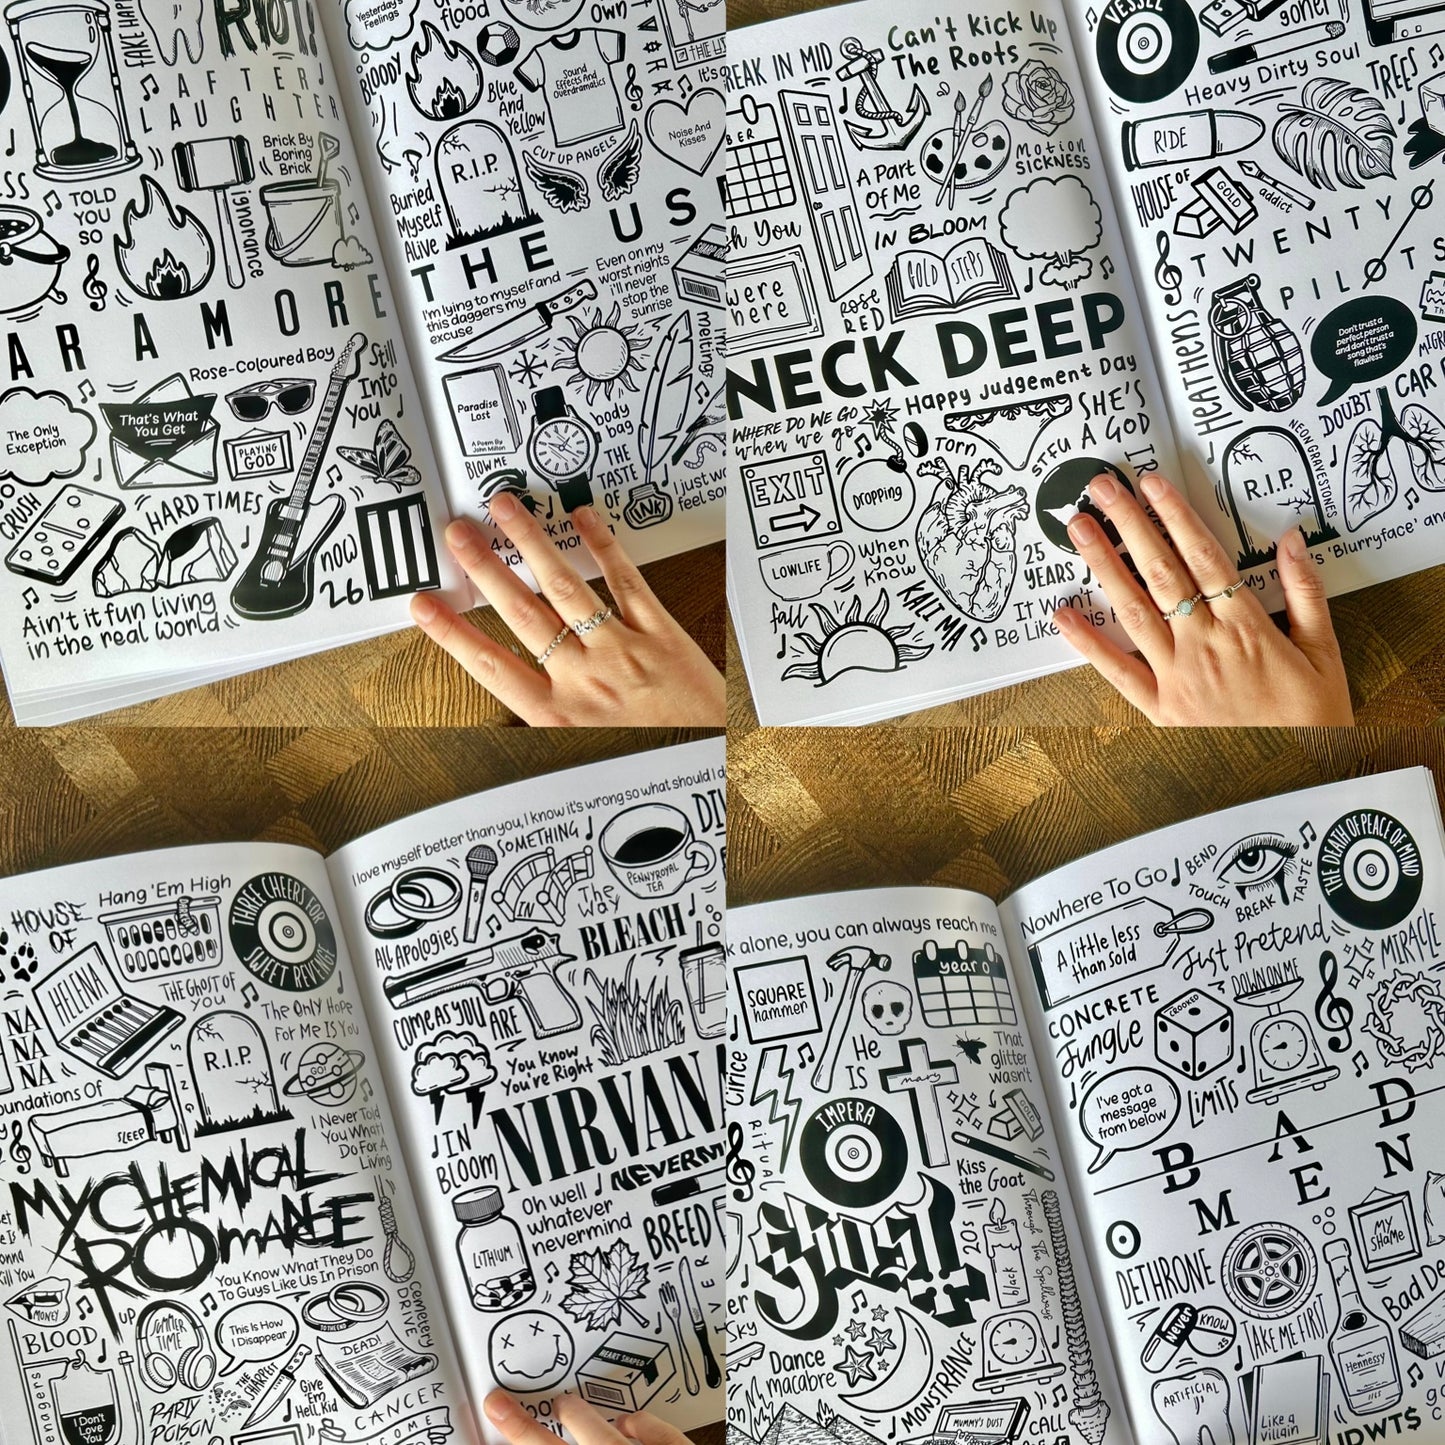 FAKE HAPPY
RIOT!
AFTER
LAUGHTER
TOLD
YOU
SO
ignorance
Brick By
Boring
Brick
PARAMORE
Rose-Coloured Boy
Still
Into
You
The Only
Exception
That's What
You Get
PLAYING
GOD
CRUSH
HARD TIMES
NOW
26
Ain't it fun living
in the real world
Yesterday's
Feelings
flood
Own
BLOODY
Blue
And
Yellow
Sound
Effects And
Overdramatics
It's
Noise And
Kisses
R.I.P.
CUT UP ANGELS
Buried
Myself
Alive
THE US
I'm lying to myself and
this daggers my
excuse
Even on my
worst nights
i'll never
stop the
sunrise
melting
Paradise
Lost
A Poem By
John Milton
body
bag
BLOW ME
THE
TASTE
OF
INK
I just
feel
BREAK IN MID
Can't Kick Up
The Roots
A Part
Of Me
MOTION
SICKNESS
IN BLOOM
GOLD STEPS
You
were
here
Rose
RED
NECK DEEP
Happy Judgement Day
WHERE DO WE GO
when we go
TORN
STFU
SHE'S
A GOD
EXIT
Dropping
LOWLIFE
When
you
Know
fall
KALI MA
25
YEARS
It Won't
Be Like
VESSEL
goner
Heavy Dirty Soul
TREES
RIDE
HOUSE OF
GOLD
addict
TWENTY
PILØTS
HEATHENS
Don't trust a
perfect person
and don't trust a
song that's
flawless
DOUBT
CAR
NEON GRAVESTONES
R.I.P.
'Blurryface' and
HOUSE
OF
Hang 'Em High
THREE CHEERS FOR
SWEET REVENGE
HELENA
THE GHOST OF
YOU
The Only Hope
For Me Is You
NA
NA
NA
NA
R.I.P.
GO!
Foundations Of
SLEEP
I Never Told
You What I
Do For A
Living
MY CHEMICAL
ROMANCE
You Know What They Do
To Guys Like Us In Prison
MONEY
BLOOD
UP
SUMMER
TIME
This Is How
I Disappear
TO THE END
DEAD!
CEMETERY
DRIVE
THE SHARPEST
Give
'Em
Hell, Kid
I Don't
Love
You
PARTY
POISON
CANCER
I love myself better than you, I know it's wrong so what should I do
SOMETHING
IN
The
Way
PENNYROYAL
TEA
All Apologies
BLEACH
COME AS YOU
ARE
You Know
You're Right
IN
BLOOM
NIRVANA
NEVERMIND
Oh well
whatever
nevermind
BREED
LITHIUM
HEART SHAPED
alone, you can always reach me
SQUARE
hammer
year 0
He
IS
mary
That
glitter
wasn't
GOLD
IMPERA
ritual
Kiss
the Goat
Ghost
20s
black
Through The Spillways
Sky
Dance
macabre
MONSTRANCE
MUMMY'S DUST
CALL
Nowhere To Go
BEND
TOUCH
BREAK
TASTE
THE DEATH OF PEACE OF MIND
A little less
than sold
Just Pretend
MIRACLE
CONCRETE
Jungle
CROOKED
DOWN ON ME
I've got a
message
from below
LIMITS
BAD
OMEN
DETHRONE
MY
SHAME
Never
KNOW
TAKE ME FIRST
Bad
ARTIFICIAL
Like a
villain
Hennessy
IDWT$